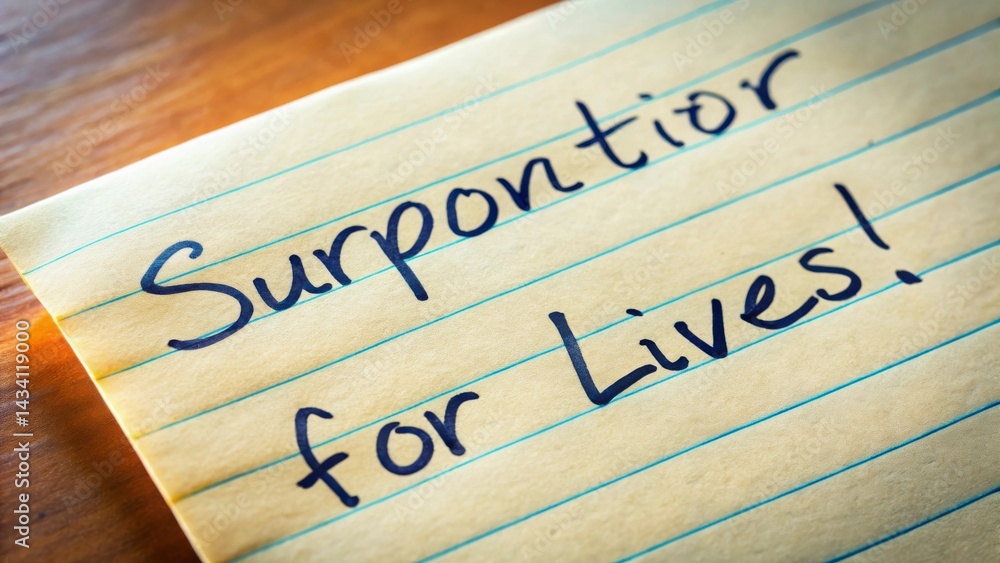 Surpontior
for Lives!
Adobe Stock | #1434119000